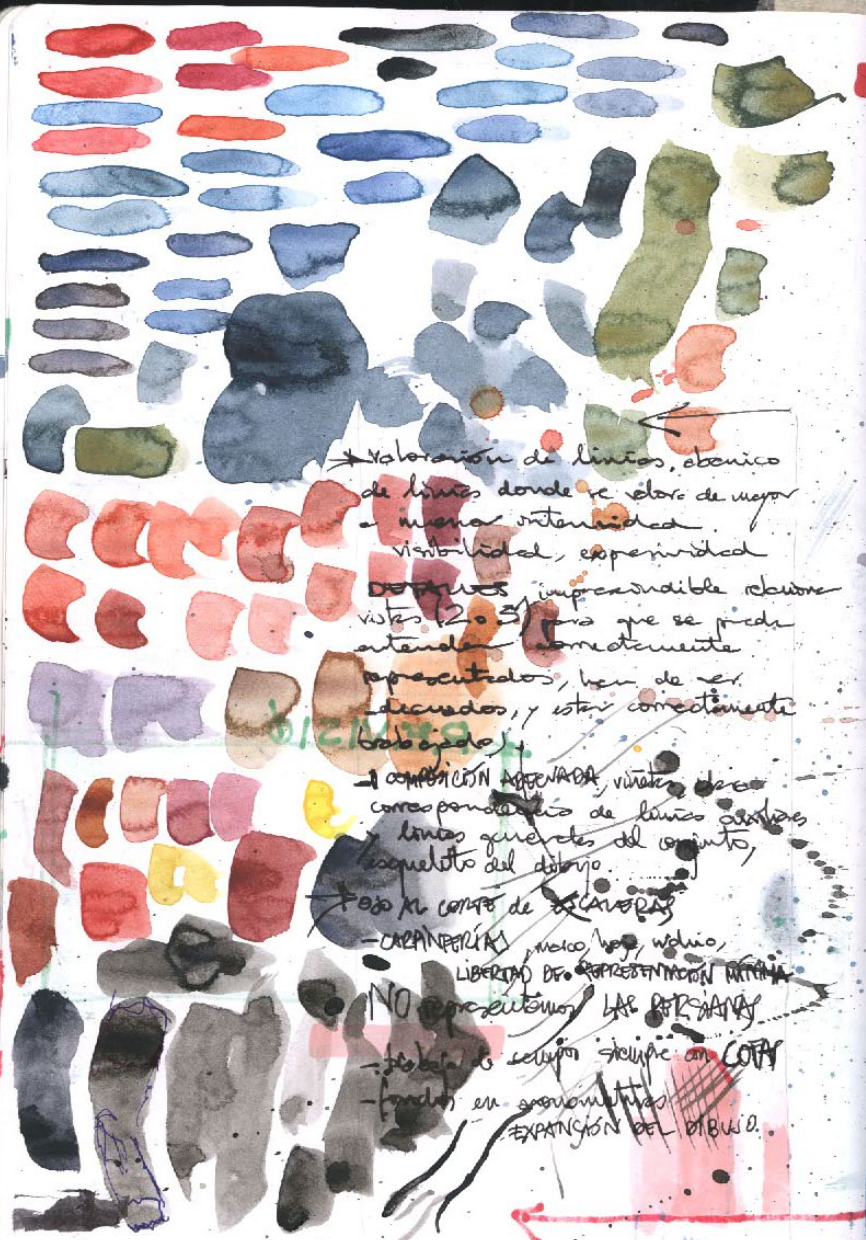 valoración de líneas, abanico
de líneas donde se valora de mayor
a menor intensidad
visibilidad, expresividad
DETALLES imprescindible relacionar
vistas (2 o 3) para que se pueda
entender correctamente
representados, han de ser
adecuados, y estar correctamente
trabajados,
- COMPOSICIÓN ADECUADA, viñetas,
correspondencia de líneas auxiliares
y líneas generales del conjunto,
esqueleto del dibujo.
OJO AL CORTE de ESCALERAS
- CARPINTERÍAS, marco, hoja, vidrio,
LIBERTAD DE REPRESENTACIÓN MÍNIMA
NO representamos LAS PERSIANAS
- trabajo de campo siempre con COTAS
- fondos en axonometrías
EXPANSIÓN DEL DIBUJO.